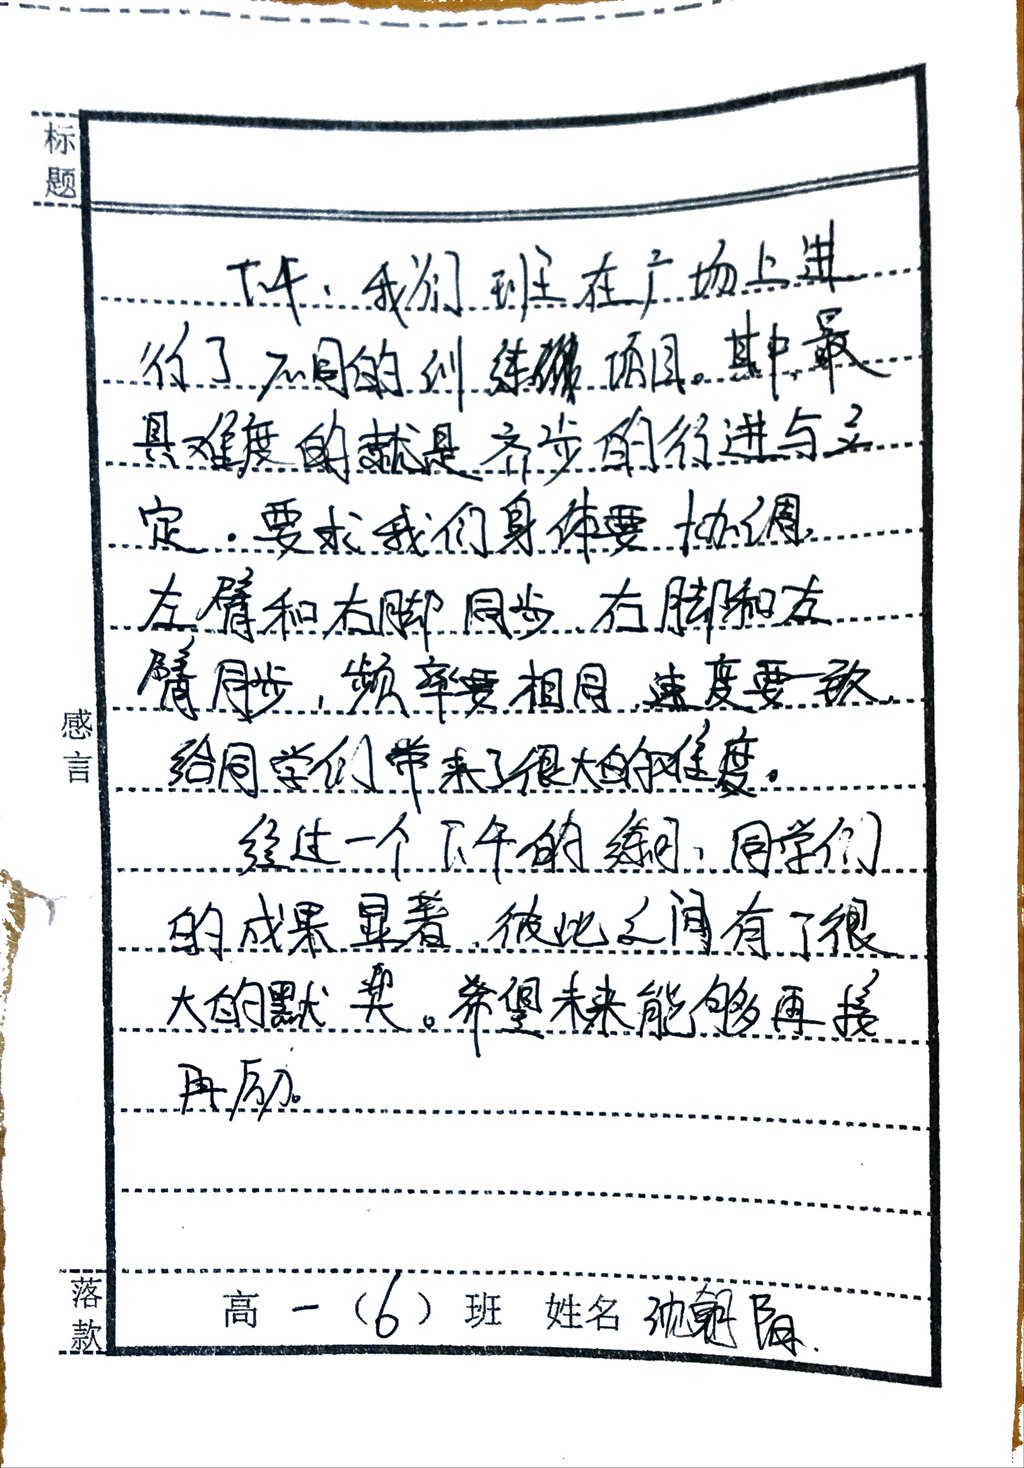 标题
下午,我们班在广场上进
行了不同的训练项目。其中,最
具难度的就是齐步的行进与立
定。要求我们身体要协调,
左臂和右脚同步,右脚和左
臂同步,频率要相同,速度要一致,
给同学们带来了很大的难度。
感言
经过一个下午的练习,同学们
的成果显著,彼此之间有了很
大的默契。希望未来能够再接
再励。
落款
高一(6)班 姓名 沈朝阳.